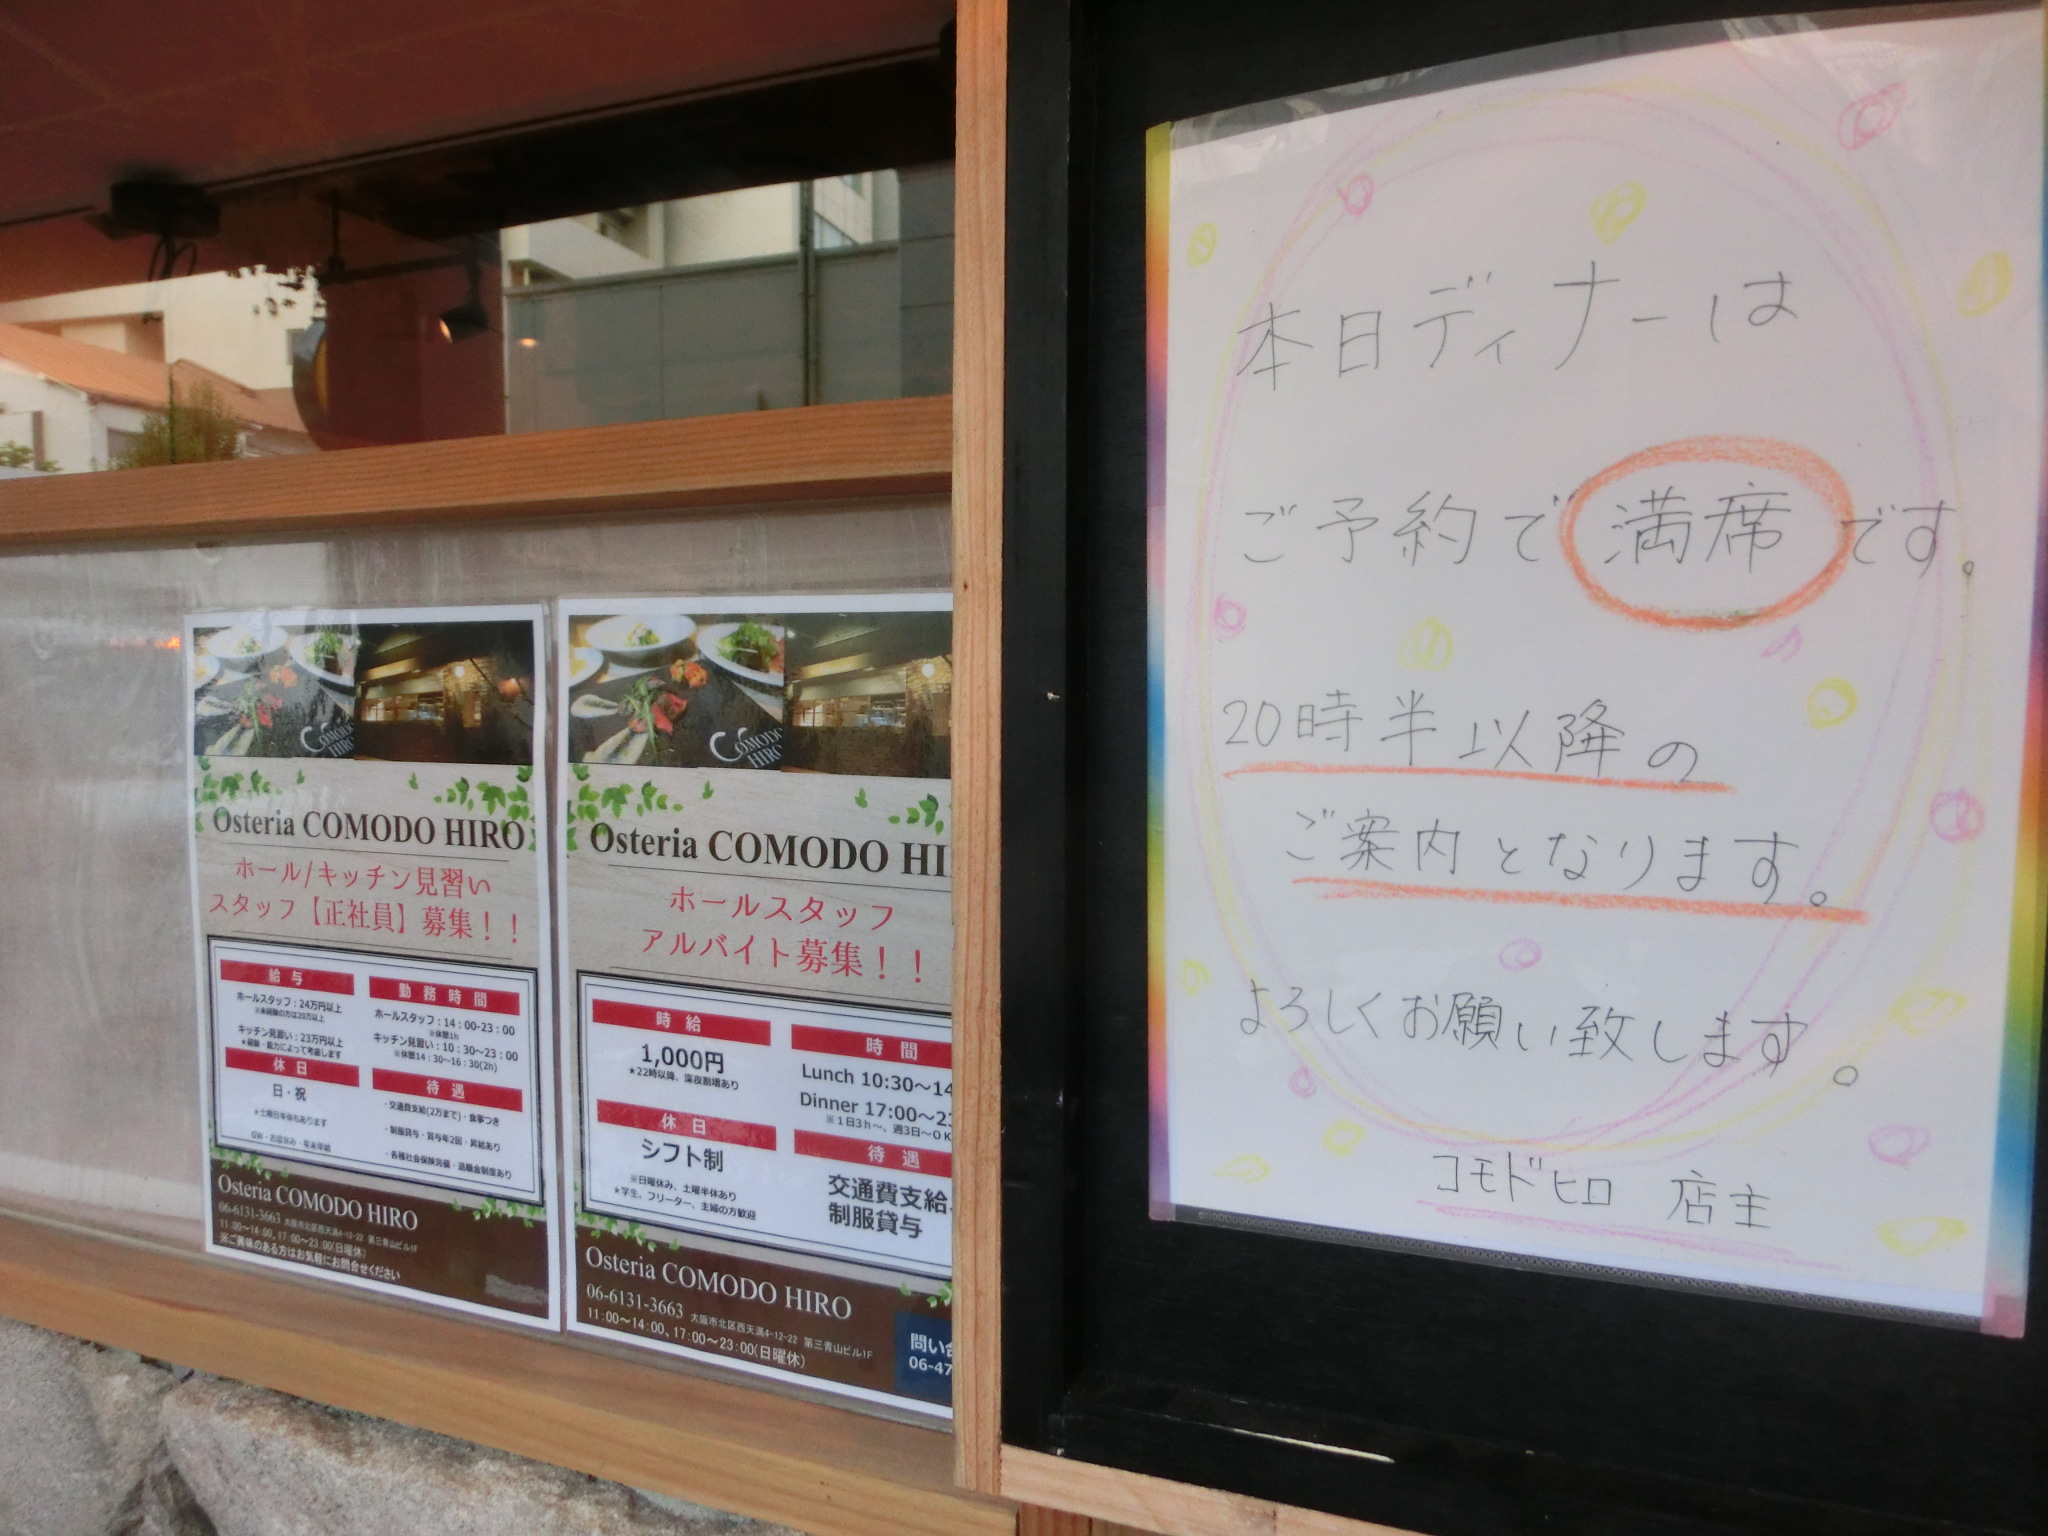 COMODO
HIRO
Osteria COMODO HIRO
ホール/キッチン見習い
スタッフ【正社員】募集！！
給与
ホールスタッフ：24万円以上
※未経験の方は20万以上
キッチン見習い：23万円以上
★経験・能力によって考慮します
休日
日・祝
★土曜日半休もあります
GW・お盆休み・年末年始
勤務時間
ホールスタッフ：14：00-23：00
※休憩1h
キッチン見習い：10：30～23：00
※休憩14：30～16：30(2h)
待遇
・交通費支給(2万まで)・食事つき
・制服貸与・賞与年2回・昇給あり
・各種社会保険完備・退職金制度あり
Osteria COMODO HIRO
06-6131-3663 大阪市北区西天満4-12-22 第三青山ビル1F
11:00～14:00、17:00～23:00(日曜休)
※ご興味のある方はお気軽にお問合せください
COMODO
HIRO
Osteria COMODO HI
ホールスタッフ
アルバイト募集！！
時給
1,000円
★22時以降、深夜割増あり
休日
シフト制
※日曜休み、土曜半休あり
★学生、フリーター、主婦の方歓迎
時間
Lunch 10:30～14
Dinner 17:00～2
※1日3h～、週3日～OK
待遇
交通費支給
制服貸与
Osteria COMODO HIRO
06-6131-3663 大阪市北区西天満4-12-22 第三青山ビル1F
11:00～14:00、17:00～23:00(日曜休)
問い合
06-47
本日ディナーは
ご予約で満席です。
20時半以降の
ご案内となります。
よろしくお願い致します。
コモドヒロ 店主